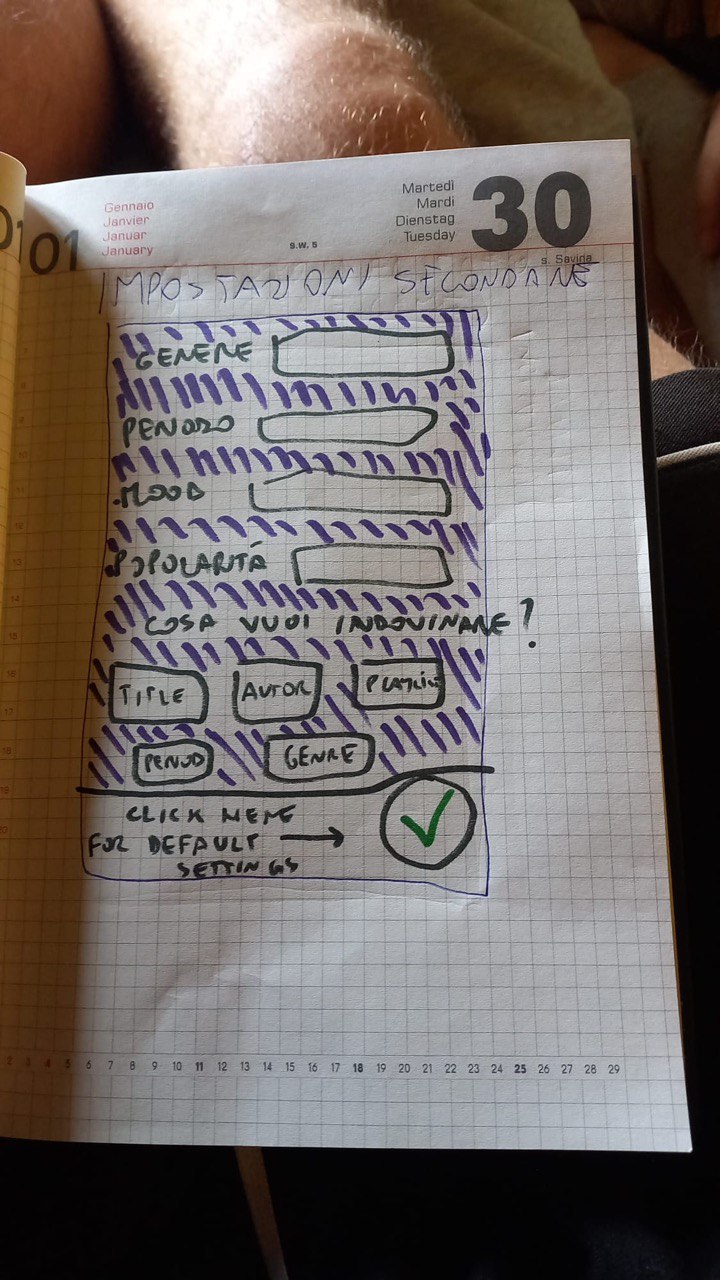 01
Gennaio
Janvier
Januar
January
S.W. 5
Martedì
Mardi
Dienstag
Tuesday
30
s. Savina
IMPOSTAZIONI SECONDARIE
GENERE
PERIODO
MOOD
POPOLARITÀ
COSA VUOI INDOVINARE?
TITLE AUTOR PLAYLIST
PERIOD GENRE
CLICK HERE
FOR DEFAULT →
SETTINGS
2 3 4 5 6 7 8 9 10 11 12 13 14 15 16 17 18 19 20 21 22 23 24 25 26 27 28 29